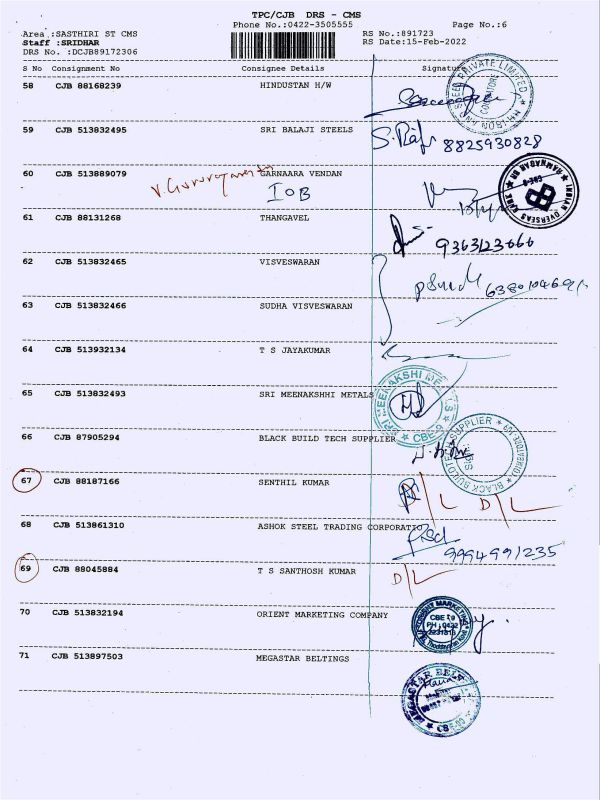 TPC/CJB DRS - CMS
Phone No.:0422-3505555 Page No.:6
Area :SASTHIRI ST CMS RS No.:891723
Staff :SRIDHAR RS Date:15-Feb-2022
DRS No. :DCJB89172306
S No Consignment No Consignee Details Signature
58 CJB 88168239 HINDUSTAN H/W
59 CJB 513832495 SRI BALAJI STEELS
8825930828
60 CJB 513889079 SARNAARA VENDAN
IOB
INDIAN OVERSEAS BANK
61 CJB 88131268 THANGAVEL
9363123666
62 CJB 513832465 VISVESWARAN
63 CJB 513832466 SUDHA VISVESWARAN
64 CJB 513932134 T S JAYAKUMAR
65 CJB 513832493 SRI MEENAKSHHI METALS
SRI MEENAKSHI METALS
CBE-9
66 CJB 87905294 BLACK BUILD TECH SUPPLIER
67 CJB 88187166 SENTHIL KUMAR
D/L D/L
68 CJB 513861310 ASHOK STEEL TRADING CORPORATIO
9994991235
69 CJB 88045884 T S SANTHOSH KUMAR
D/L
70 CJB 513832194 ORIENT MARKETING COMPANY
71 CJB 513897503 MEGASTAR BELTINGS